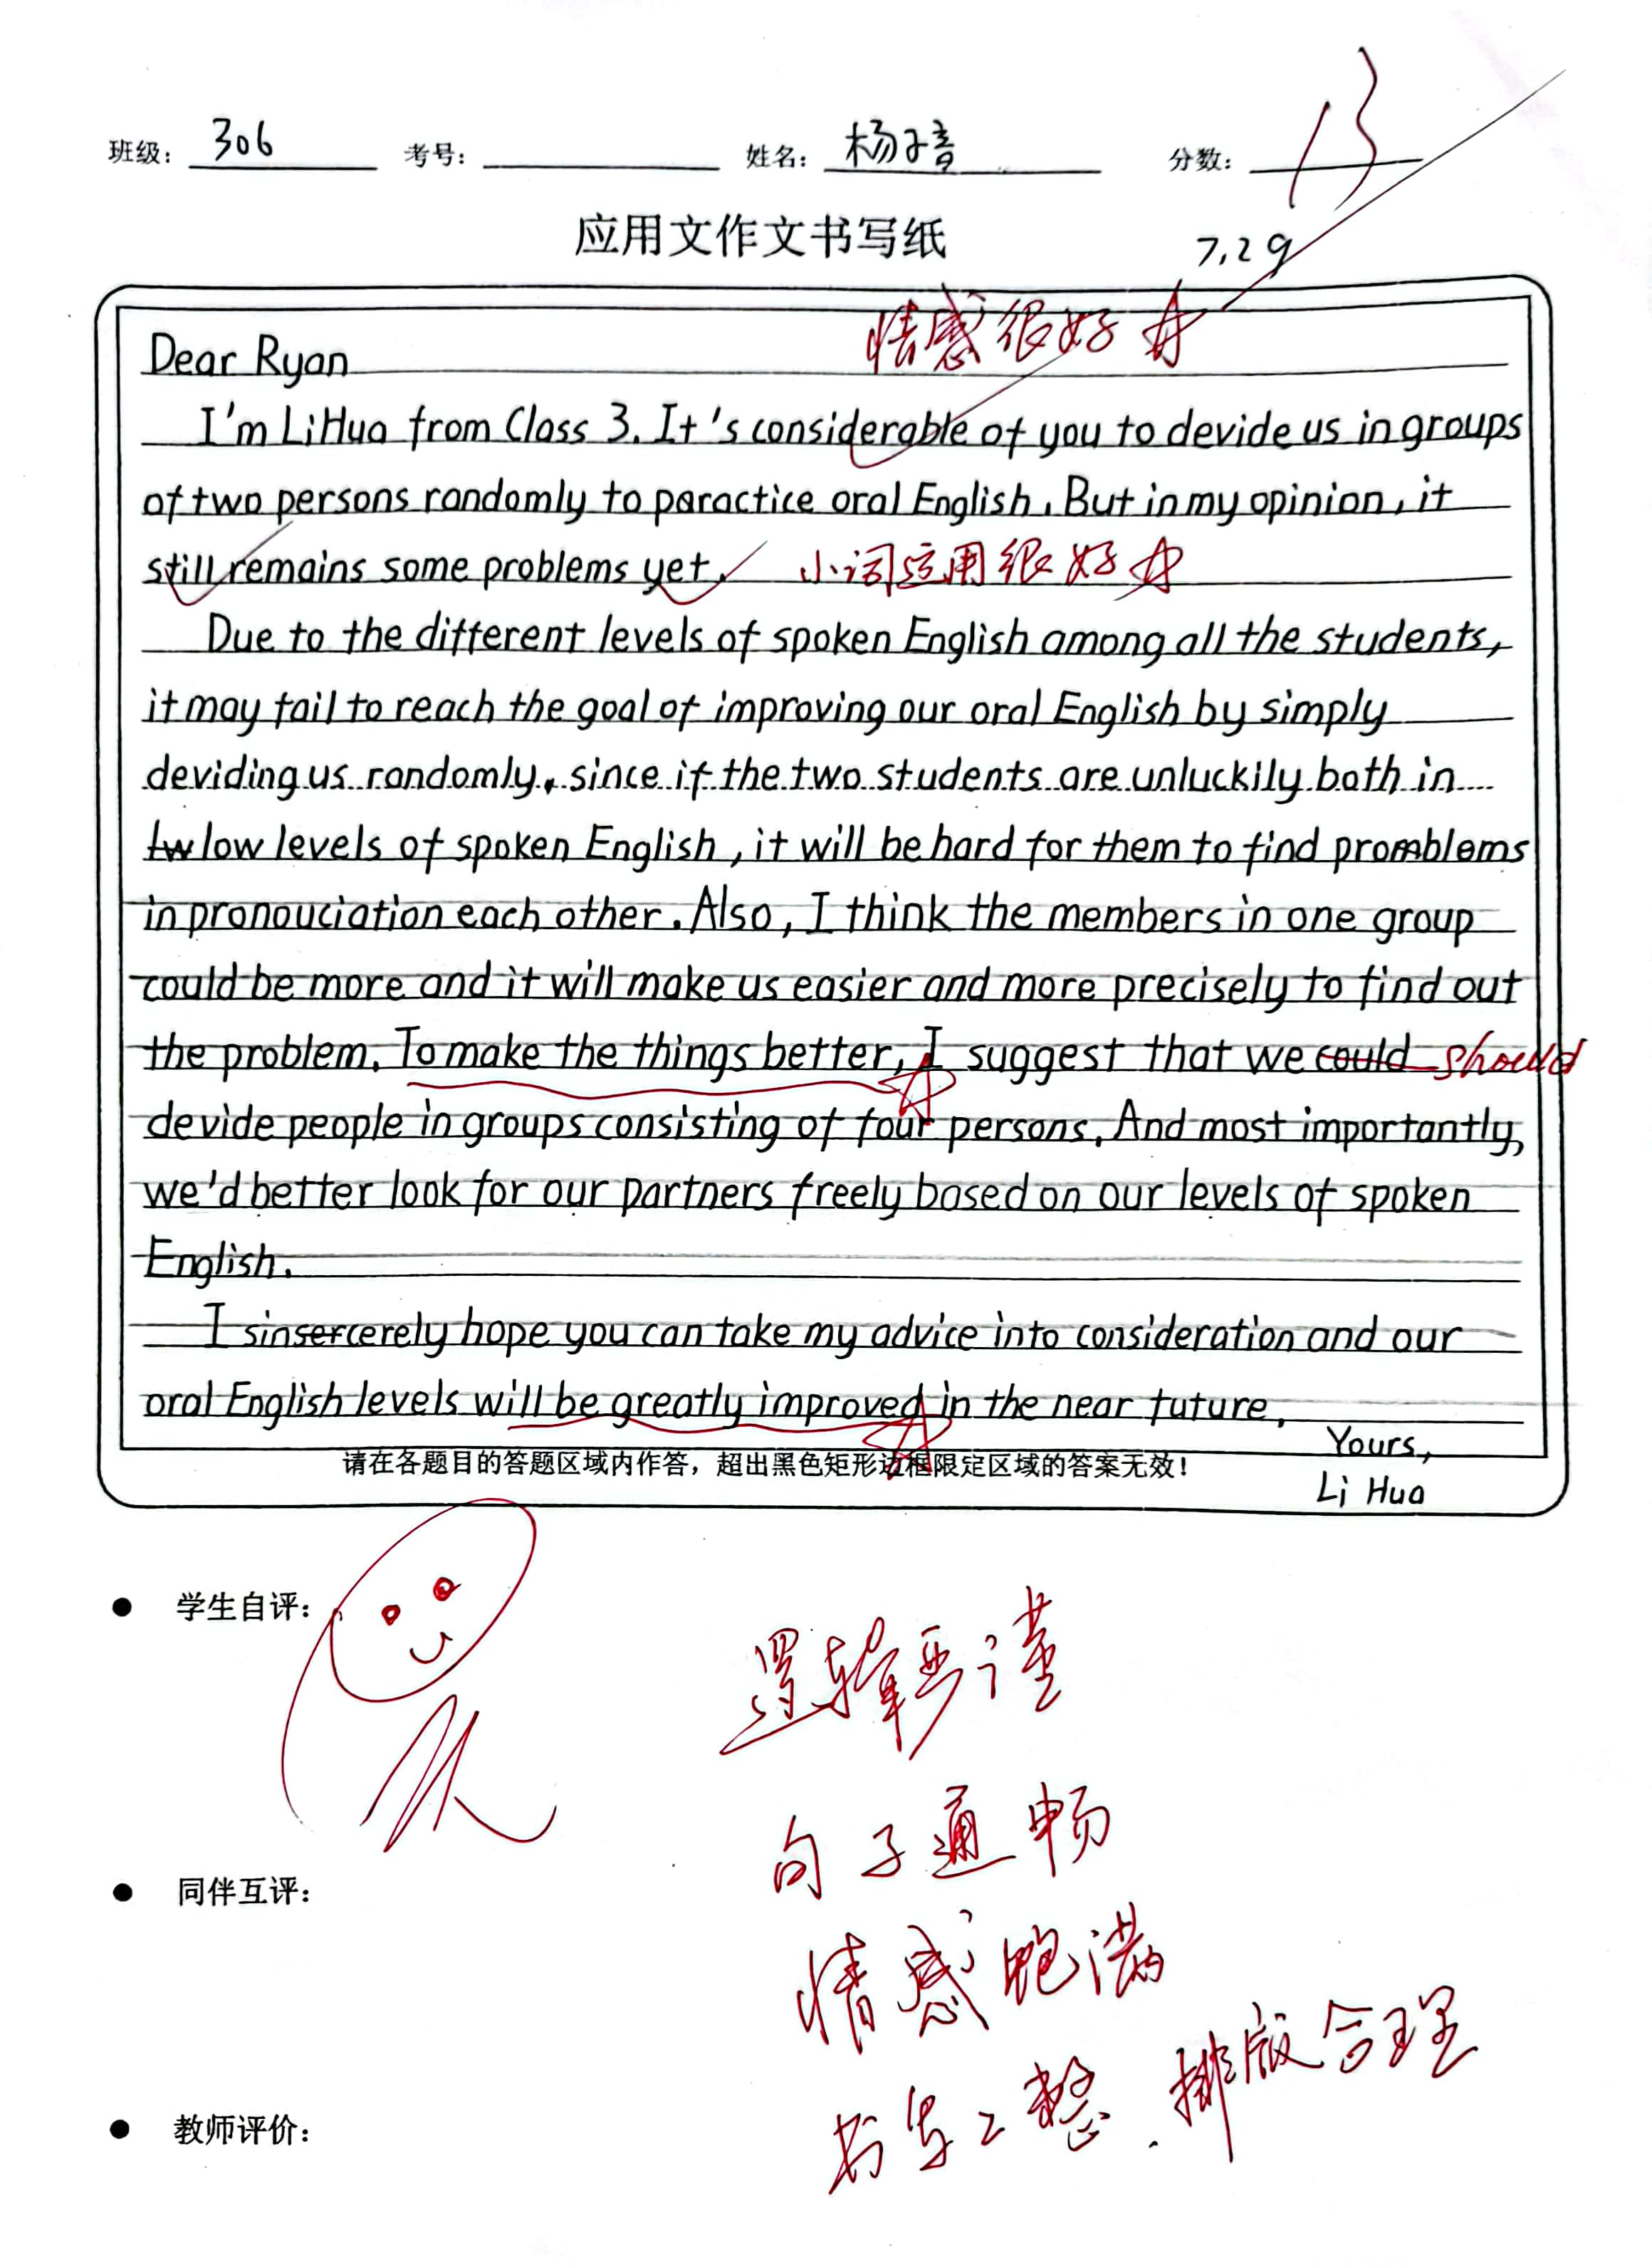 班级: 306 考号: 姓名: 杨子 分数: 13
应用文作文书写纸
7.29
情感很好
Dear Ryan
I'm Li Hua from Class 3. It's considerable of you to devide us in groups
of two persons randomly to paractice oral English. But in my opinion, it
still remains some problems yet. 小词运用很好
Due to the different levels of spoken English among all the students,
it may fail to reach the goal of improving our oral English by simply
deviding us randomly, since if the two students are unluckily both in
tw low levels of spoken English, it will be hard for them to find promblems
in pronouciation each other. Also, I think the members in one group
could be more and it will make us easier and more precisely to find out
the problem. To make the things better, I suggest that we could should
devide people in groups consisting of four persons. And most importantly,
we'd better look for our partners freely based on our levels of spoken
English.
I sinsercerely hope you can take my advice into consideration and our
oral English levels will be greatly improved in the near future.
Yours,
请在各题目的答题区域内作答，超出黑色矩形边框限定区域的答案无效！
Li Hua
学生自评：
逻辑严谨
句子通畅
同伴互评：
情感饱满
书写工整、排版合理
教师评价：